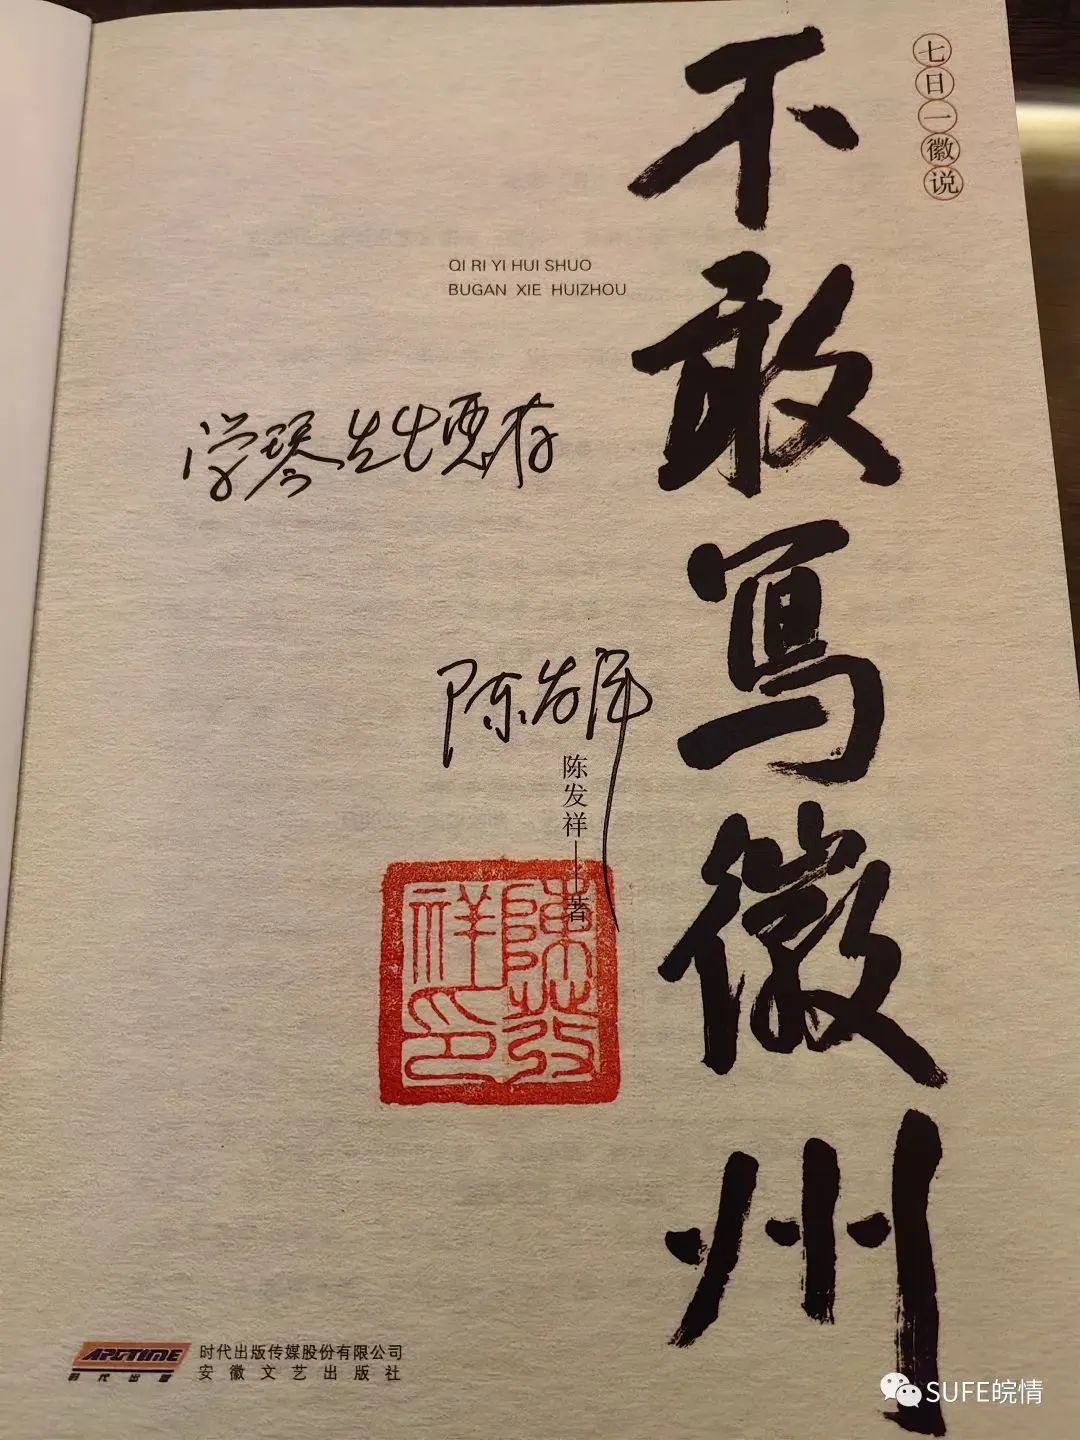 七日一徽说
不敢写徽州
QI RI YI HUI SHUO
BUGAN XIE HUIZHOU
学琴先生惠存
陈发祥
陈发祥——著
陳發祥印
APGTIME
时代出版
时代出版传媒股份有限公司
安徽文艺出版社
SUFE皖情